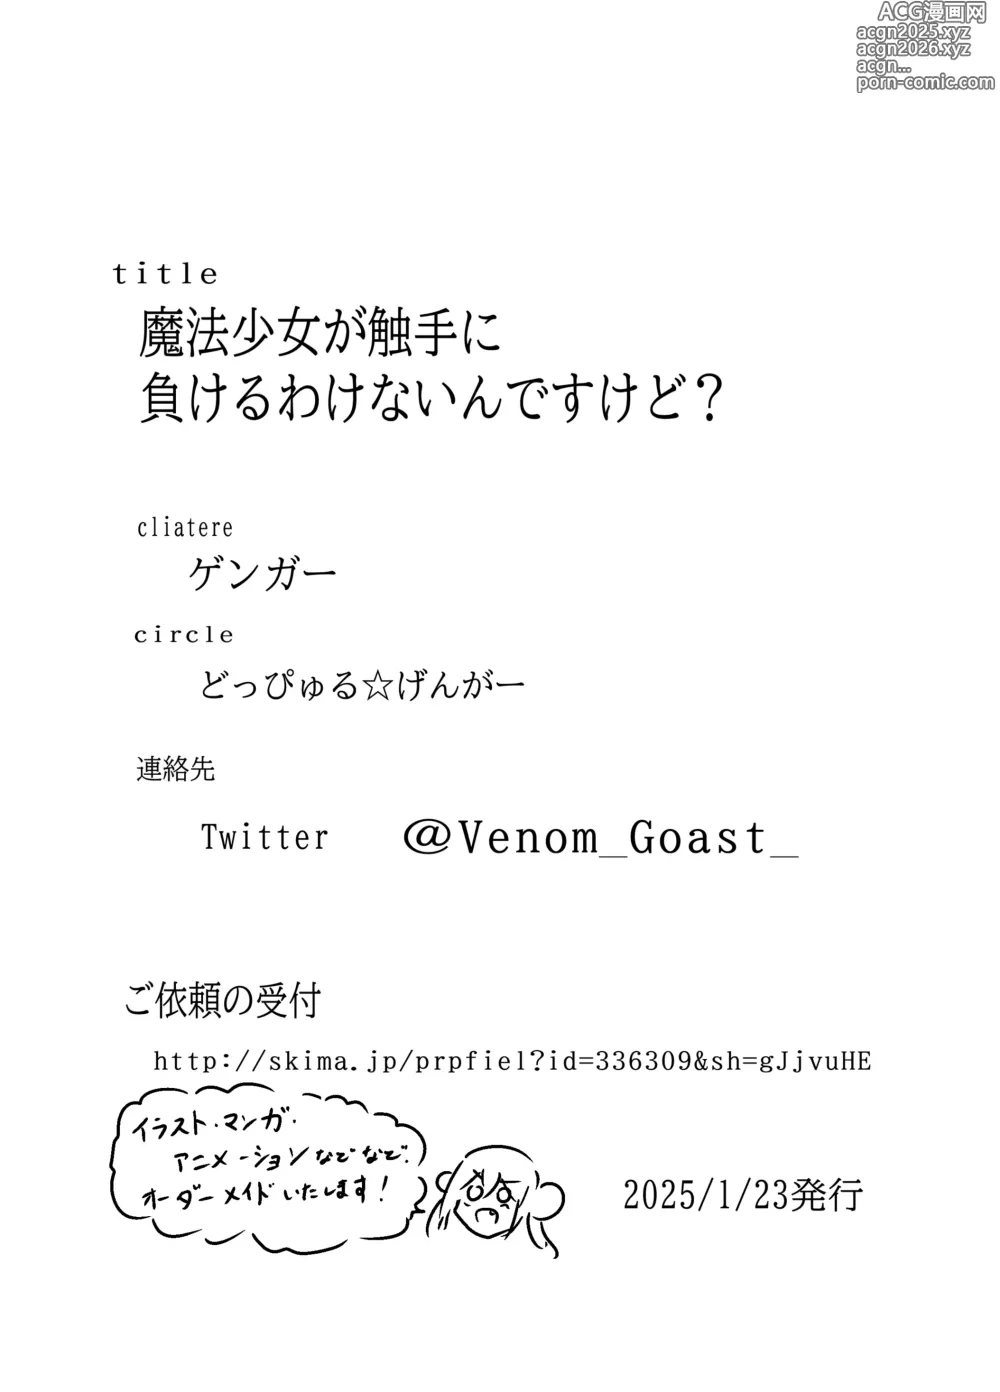 ACG漫画网
acgn2025.xyz
acgn2026.xyz
acgn...
porn-comic.com
title
魔法少女が触手に
負けるわけないんですけど？
cliatere
ゲンガー
circle
どっぴゅる☆げんがー
連絡先
Twitter @Venom_Goast_
ご依頼の受付
http://skima.jp/prpfiel?id=336309&sh=gJjvuHE
イラスト・マンガ・
アニメーションなどなど、
オーダーメイドいたします！
2025/1/23発行